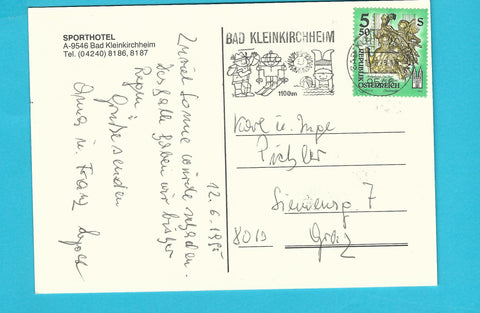 SPORTHOTEL
A-9546 Bad Kleinkirchheim
Tel. (04240) 8186, 8187
BAD KLEINKIRCHHEIM
1100m
5 50 S
REPUBLIK
ÖSTERREICH
12.6.1995
Zuviel Sonne würde schaden.
Deshalb haben wir bisher
Regen!
Grüße senden
u. Franz
Karl u. Inge
Pichler
7
8019 Graz